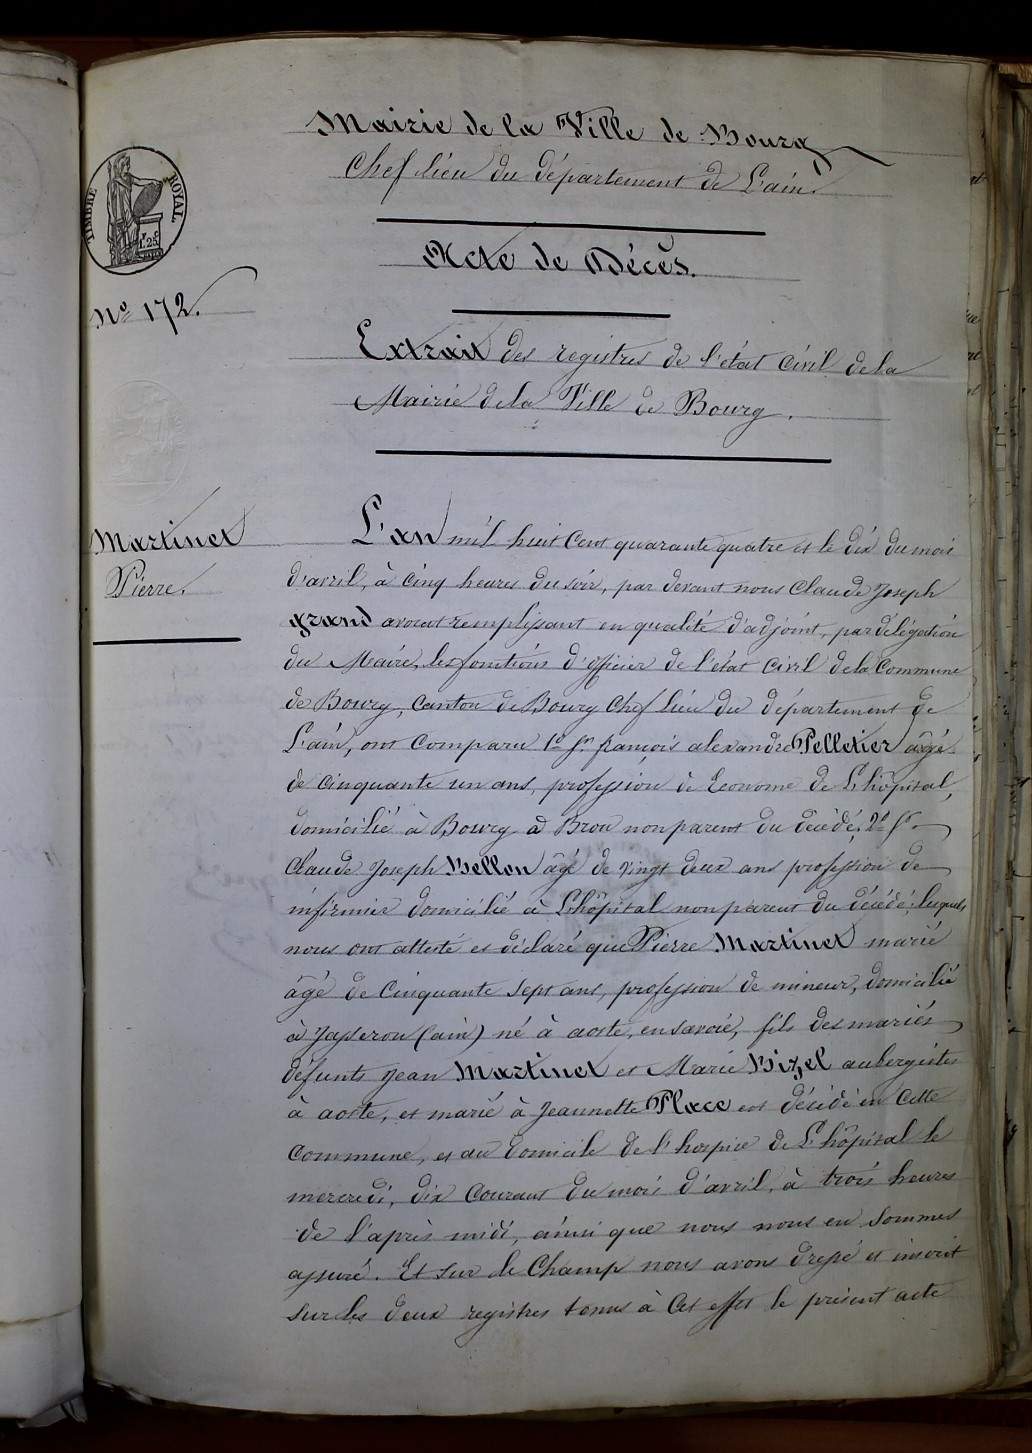 Mairie de la Ville de Bourg
Chef lieu du département de L'ain.
TIMBRE ROYAL
1F 25c
Acte de Décès.
No 172.
Extrait des registres de l'état civil de la
Mairie de la Ville de Bourg.
Martinet
Pierre.
L'an mil huit Cent quarante quatre et le dix du mois
d'avril, à cinq heures du soir, par devant nous Claude Joseph
grand avocat remplissant en qualité d'adjoint, par délégation
du Maire, les fonctions d'officier de l'état civil de la Commune
de Bourg, Canton de Bourg Chef lieu du département de
L'ain, ont Comparu 1o Sr. françois alexandre Pelletier âgé
de cinquante un ans, profession de Econome de L'hôpital,
domicilié à Bourg à Brou non parent du décédé, 2o Sr.
Claude Joseph Bellon âgé de vingt deux ans profession de
infirmier domicilié à L'hôpital non parent du décédé; lesquels
nous ont attesté et déclaré que Pierre Martinet marié
âgé de Cinquante sept ans, profession de mineur, domicilié
à Jasseron (ain) né à aoste, en savoie, fils des mariés
défunts Jean Martinet et Marie Bizel aubergistes
à aoste, et marié à Jeannette Place est décédé en Cette
Commune, et au domicile de l'hospice de L'hôpital le
mercredi, dix Courant du mois d'avril, à trois heures
de l'après midi, ainsi que nous nous en Sommes
assuré. Et sur le Champ nous avons dressé et inscrit
sur les deux registres tenus à Cet effet le présent acte